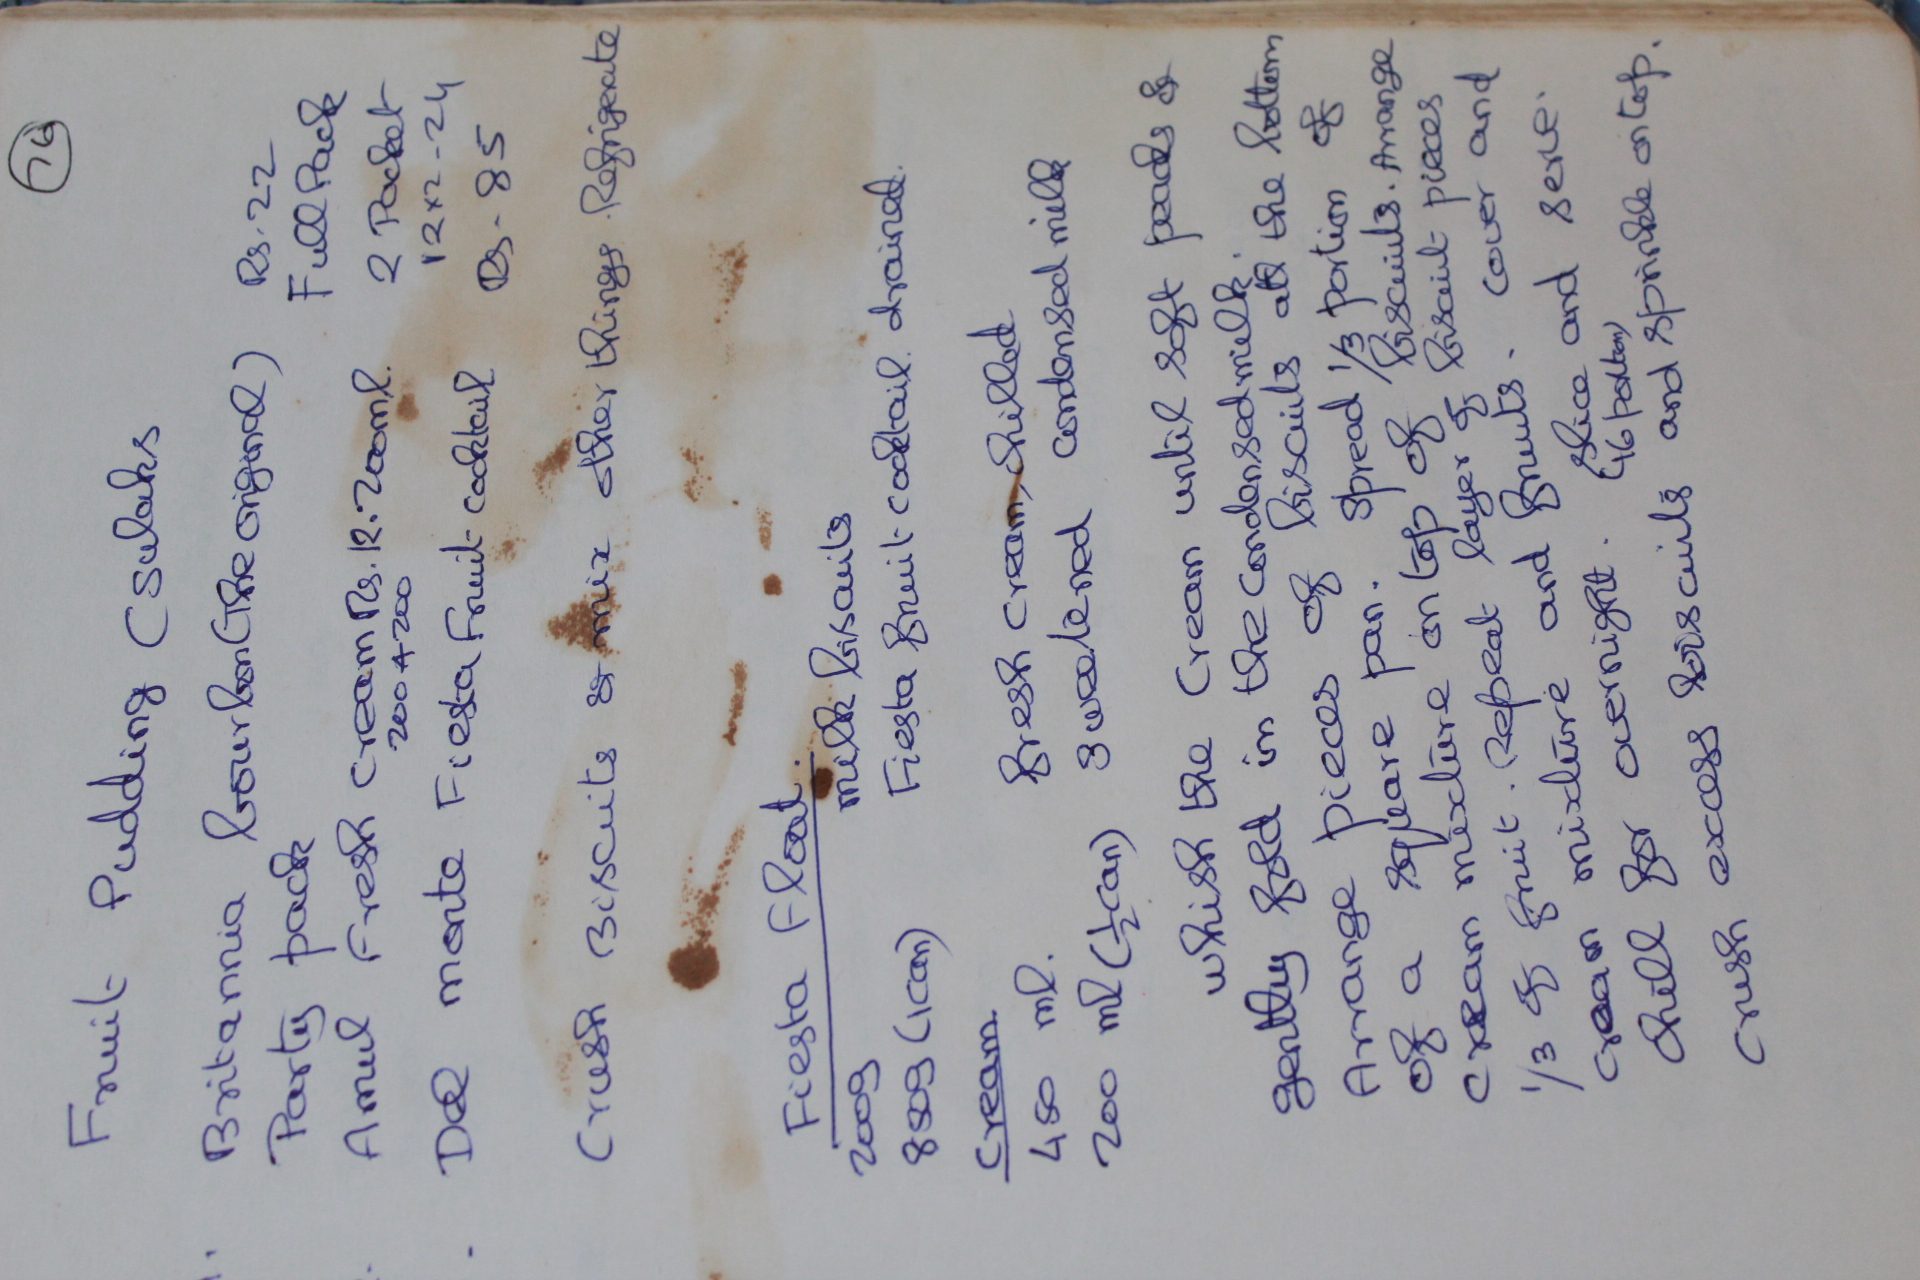 76
Fruit Pudding (Sulaks
Britannia bourbon (The original) Rs. 22
Party pack Full Pack
Amul Fresh cream Rs. 12. 200ml. 2 Packet
200+200 12x2-24
Del monte Fiesta Fruit cocktail Rs - 85
Crush Biscuits & mix other things. Refrigerate
Fiesta Float.
200g milk biscuits
850g (1can) Fiesta fruit cocktail drained.
Cream
450 ml. fresh cream, chilled
200 ml (½ can) sweetened condensed milk
whish the cream until soft peaks &
gently fold in the condensed milk.
Arrange pieces of biscuits at the bottom
of a square pan. Spread 1/3 portion of
cream mixture on top of biscuits. Arrange
1/3 of fruit. Repeat layer of biscuit pieces
cream mixture and fruits. cover and
chill for overnight. slice and serve.
(46 portion)
crush excess biscuits and sprinkle on top.